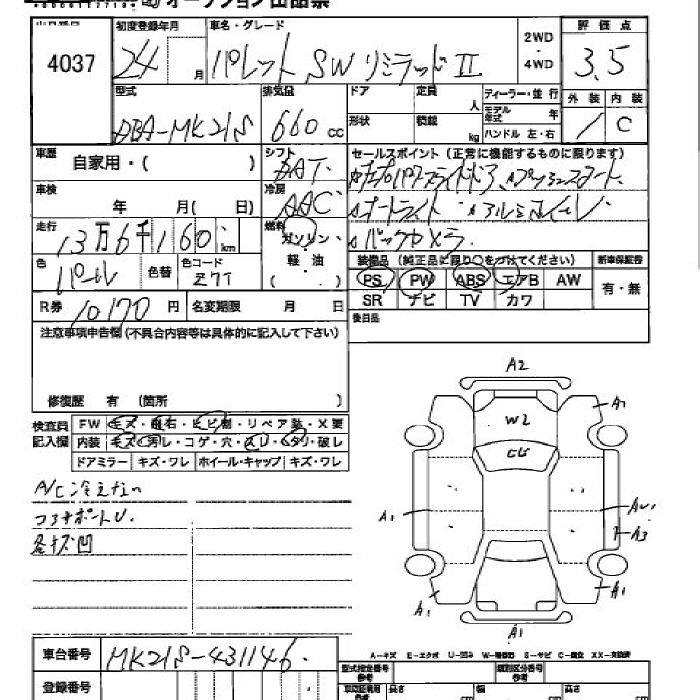 オークション出品票
出品番号 初度登録年月 車名・グレード 2WD・4WD 評価点
4037 24 月 パレット SW リミテッドⅡ 3.5
型式 排気量 ドア 定員 人 ディーラー・並行 外装 内装
DBA-MK21S 660 cc 形状 積載 kg モデル年式 年 ハンドル 左・右 C
車歴 自家用・( ) シフト セールスポイント (正常に機能するものに限ります)
車検 年 月( 日) 冷房 AAC
オートライト アルミホイール
走行 13万6千160 km 燃料 ガソリン・軽・油 ( ・ ) バックカメラ
色 パール 色替 色コード Z7T
装備品 (純正品に限り○をつけてください) 新車保証書
PS PW ABS エアB AW 有・無
SR ナビ TV カワ
R券 10170 円 名変期限 月 日 後日品
注意事項申告欄 (不具合内容等は具体的に記入して下さい)
修復歴 有 (箇所 )
検査員記入欄 FW キズ・飛石・ヒビ割・リペア跡・X要
内装 キズ・汚レ・コゲ・穴・スレ・ヘタリ・破レ
ドアミラー キズ・ワレ ホイール・キャップ キズ・ワレ
A/C冷えない
各キズ凹
A2
A1
W2
A1
A3
A1
A1
A1
車台番号 MK21S-431146
登録番号
A-キズ E-エクボ U-凹み W-補修跡 S-サビ C-腐食 XX-交換済
型式指定番号 参考 類別区分番号 参考
長さ cm 幅 cm 高さ cm